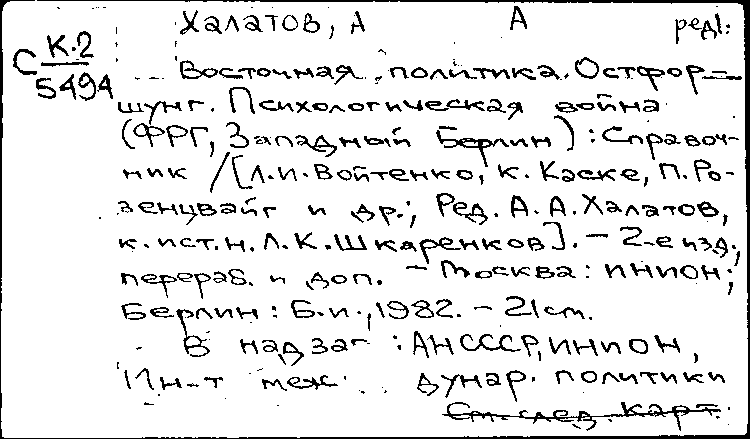 Халатов, А А ред1.
С К.2
5494
Восточная политика. Остфор-
шунг. Психологическая война
(ФРГ, Западный Берлин) : Справоч-
ник / [Л.И. Войтенко, К. Каске, П. Ро-
зенцвайг и др.; Ред. А.А. Халатов,
к. ист. н. Л.К. Шкаренков]. – 2-е изд.,
перераб. и доп. – Москва : ИНИОН;
Берлин : Б.и., 1982. – 21 см.
В надзаг : АН СССР, ИНИОН,
Ин-т меж дунар. политики
См. след. карт.